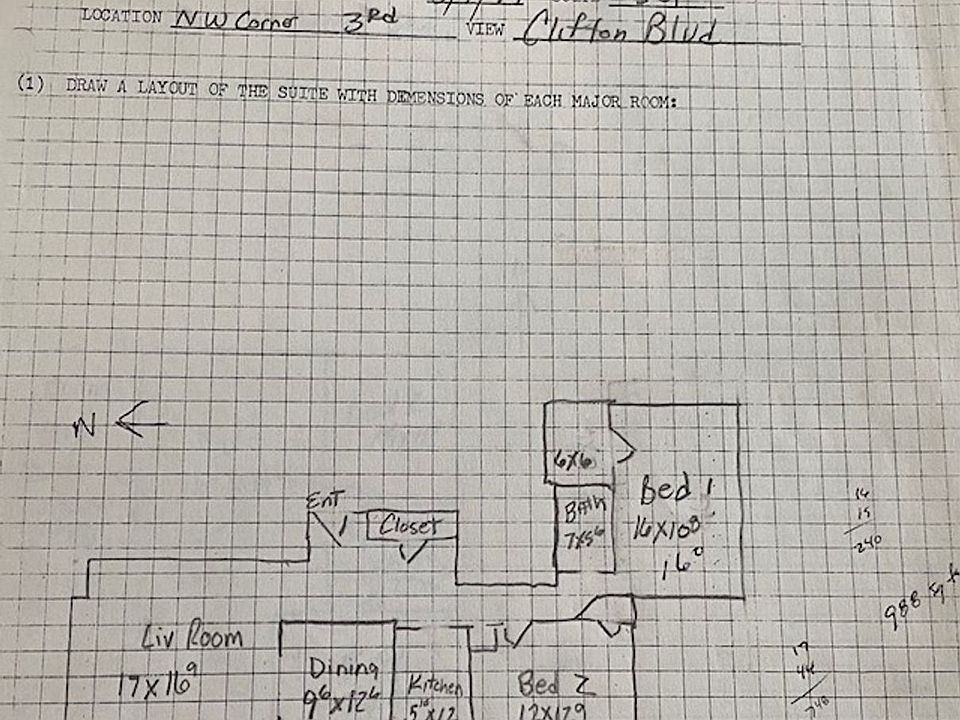 LOCATION NW Corner 3rd VIEW Clifton Blvd
(1) DRAW A LAYOUT OF THE SUITE WITH DEMENSIONS OF EACH MAJOR ROOM:
N
6x6
Ent
Closet
Bath
7x5⁶
Bed 1
16x10⁸
16⁰
14
15
240
988 sq ft
Liv Room
17x16⁹
Dining
9⁶x12⁶
Kitchen
Bed 2
12x179
17
44
748